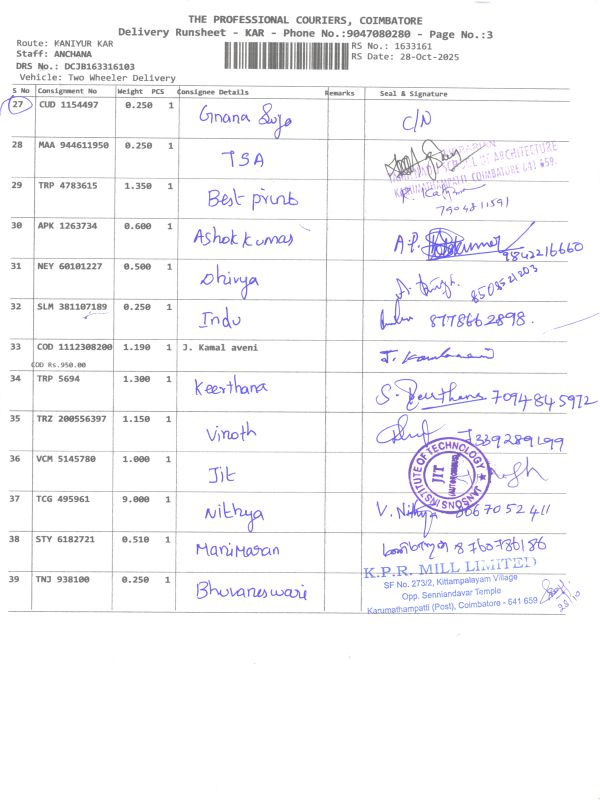 THE PROFESSIONAL COURIERS, COIMBATORE
Delivery Runsheet - KAR - Phone No.:9047080280 - Page No.:3
Route: KANIYUR KAR
RS No.: 1633161
Staff: ANCHANA
RS Date: 28-Oct-2025
DRS No.: DCJB163316103
Vehicle: Two Wheeler Delivery
S No Consignment No Weight PCS Consignee Details Remarks Seal & Signature
27 CUD 1154497 0.250 1 Gnana C/N
28 MAA 944611950 0.250 1 TSA
SCHOOL OF ARCHITECTURE
COIMBATORE 641 659.
29 TRP 4783615 1.350 1 Best prints
7904811591
30 APK 1263734 0.600 1 Ashok kumar 9842216660
31 NEY 60101227 0.500 1 Dhivya 8508521203
32 SLM 381107189 0.250 1 Indu 8778662898.
33 COD 1112308200 1.190 1 J. Kamal aveni
COD Rs.950.00
34 TRP 5694 1.300 1 Keerthana 7094845972
35 TRZ 200556397 1.150 1 Vinoth 7339289199
36 VCM 5145780 1.000 1 Jit
JANSONS INSTITUTE OF TECHNOLOGY
JIT
37 TCG 495961 9.000 1 Nithya V. Nithya
38 STY 6182721 0.510 1 Manimaran 8760786186
39 TNJ 938100 0.250 1 Bhuvaneswari
K.P.R. MILL LIMITED
SF No. 273/2, Kittampalayam Village
Opp. Senniandavar Temple
Karumathampatti (Post), Coimbatore - 641 659
28/10